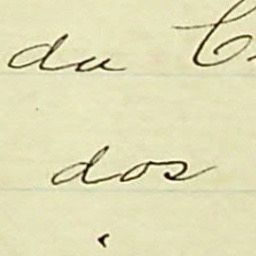 da C
dos